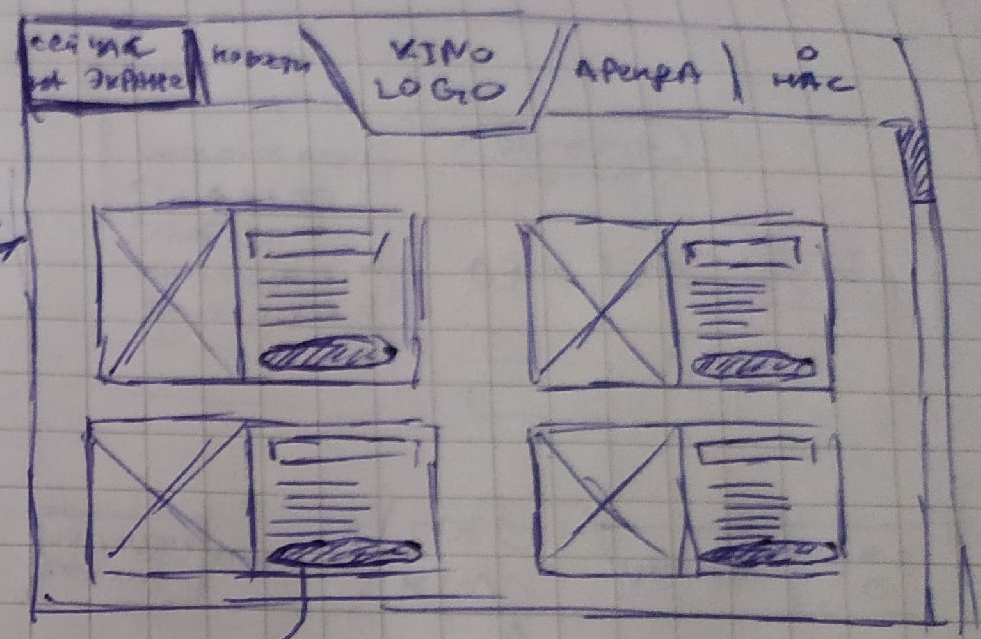 сейчас
на экране
новости
KINO
LOGO
Аренда
О
НАС